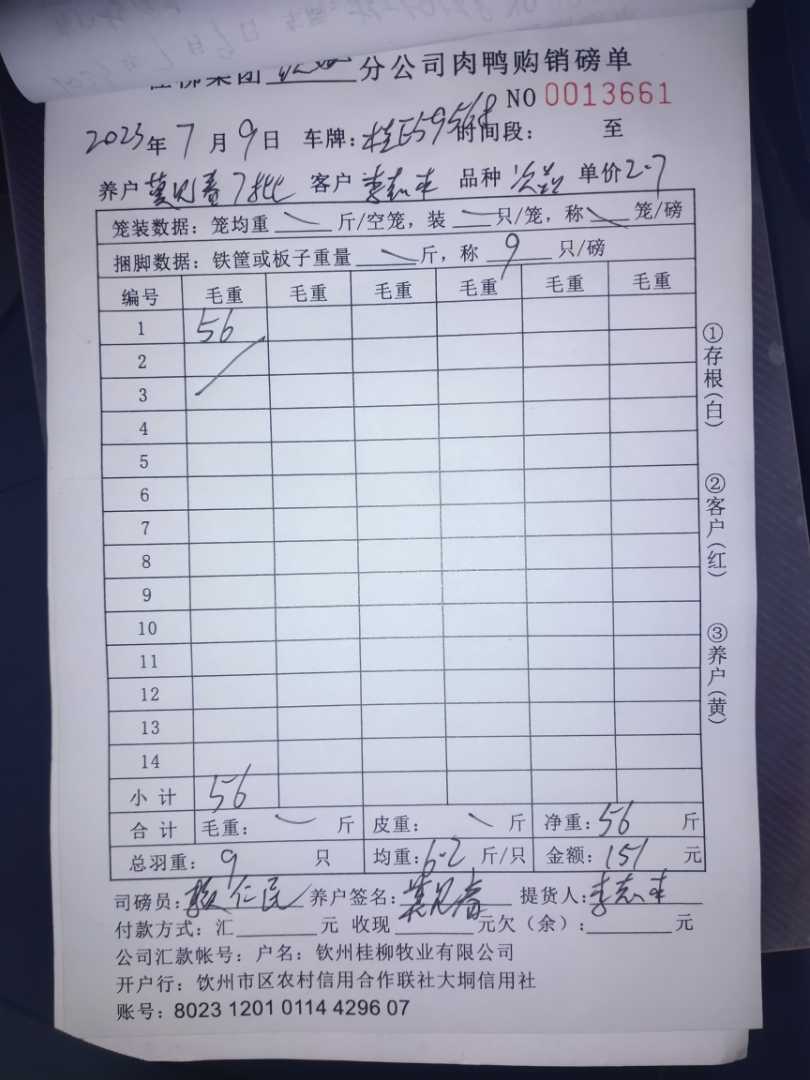 分公司肉鸭购销磅单
NO 0013661
2023年7月9日 车牌: 时间段: 至
养户 7批 客户 李志 品种 次品 单价2.7
笼装数据：笼均重 斤/空笼，装 只/笼，称 笼/磅
捆脚数据：铁筐或板子重量 斤，称 9 只/磅
编号 毛重 毛重 毛重 毛重 毛重 毛重
1 56
2
3
4
5
6
7
8
9
10
11
12
13
14
小计 56
合计 毛重： 斤 皮重： 斤 净重：56 斤
总羽重：9 只 均重：6.2 斤/只 金额：151 元
司磅员： 仁民 养户签名： 提货人：李志
付款方式：汇 元 收现 元欠（余）： 元
公司汇款帐号：户名：钦州桂柳牧业有限公司
开户行：钦州市区农村信用合作联社大垌信用社
账号：8023 1201 0114 4296 07
①存根(白)
②客户(红)
③养户(黄)